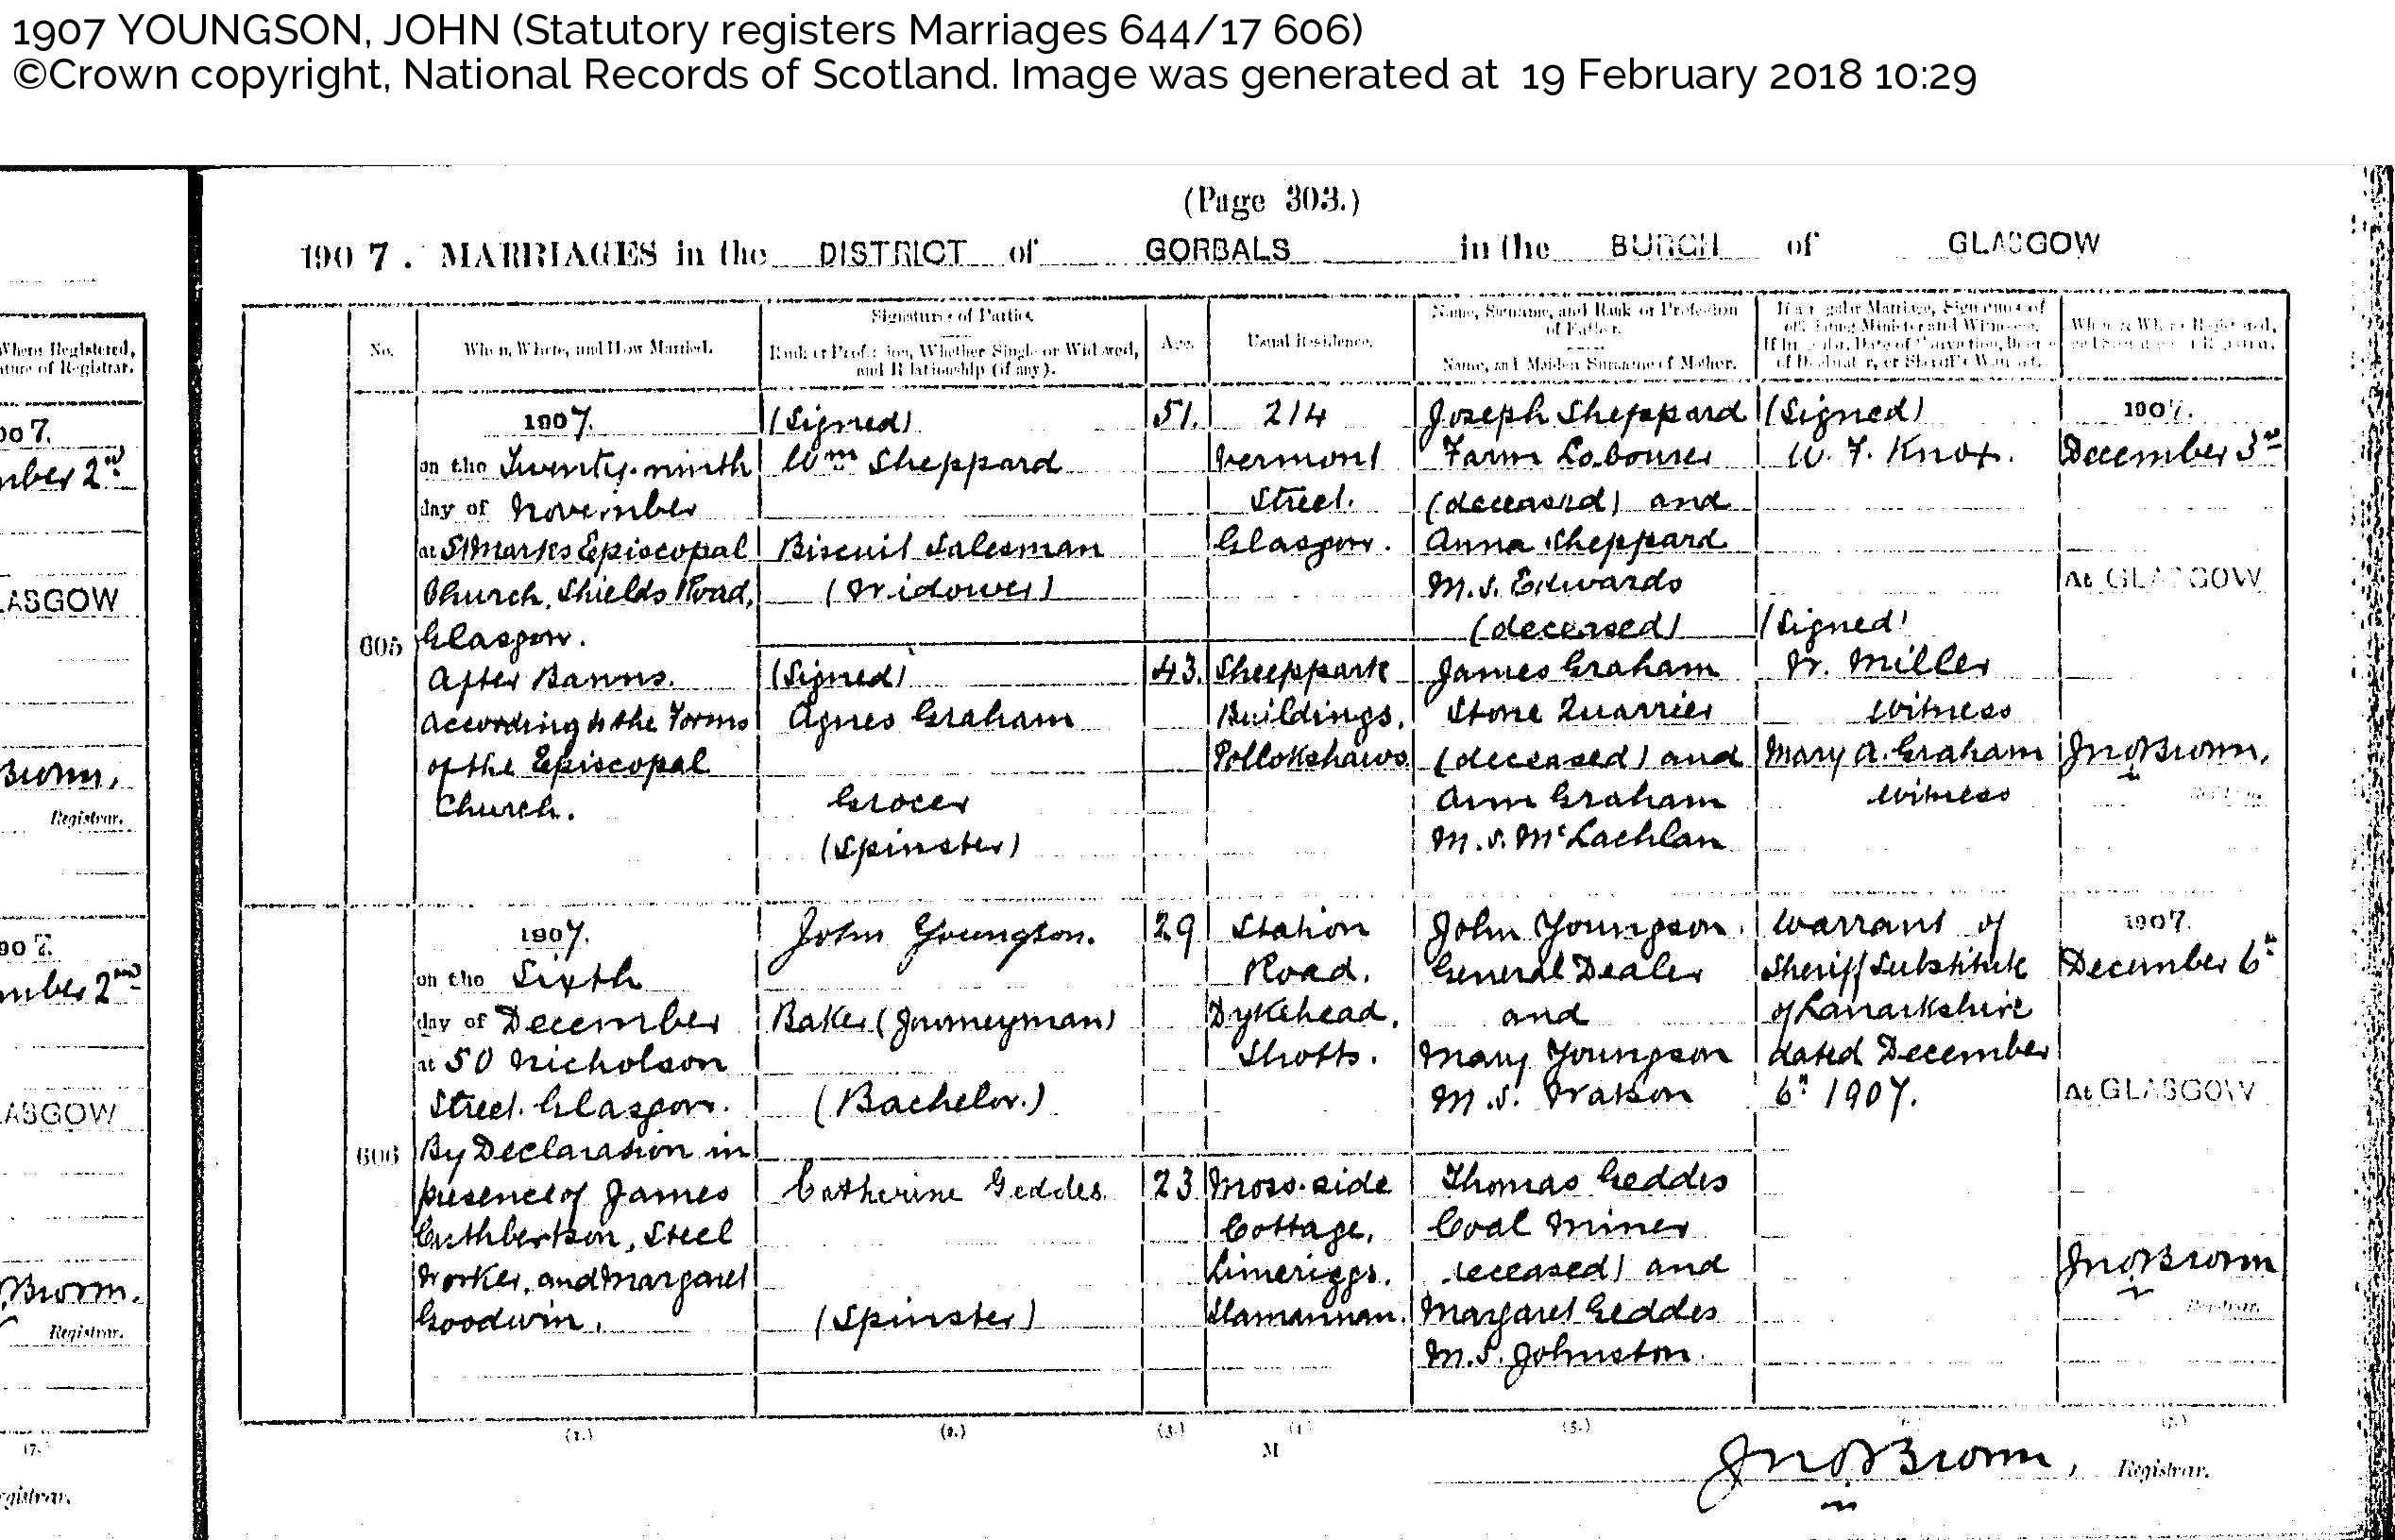 1907 YOUNGSON, JOHN (Statutory registers Marriages 644/17 606)
©Crown copyright, National Records of Scotland. Image was generated at 19 February 2018 10:29
(Page 303.)
1907. MARRIAGES in the DISTRICT of GORBALS in the BURGH of GLASGOW
No.
When, Where, and How Married.
Signatures of Parties.
Rank or Profession, Whether Single or Widowed,
and Relationship (if any).
Age.
Usual Residence.
Name, Surname, and Rank or Profession
of Father.
Name, and Maiden Surname of Mother.
If a regular Marriage, Signatures of
officiating Minister and Witnesses.
When & Where Registered,
605
1907.
on the Twenty-ninth
day of November
at St Marks Episcopal
Church, Shields Road,
Glasgow.
After Banns.
According to the Forms
of the Episcopal
Church.
(Signed)
Wm Sheppard
Biscuit Salesman
(Widower)
(Signed)
Agnes Graham
Grocer
(Spinster)
51.
43.
214
Vermont
Street.
Glasgow.
Sheeppark
Buildings,
Pollokshaws
Joseph Sheppard
Farm Labourer
(deceased) and
Anna Sheppard
M.S. Edwards
(deceased)
James Graham
Stone Quarrier
(deceased) and
Ann Graham
M.S. McLachlan
(Signed)
W. F. Knox.
(Signed)
W. Miller
Witness
Mary A. Graham
Witness
1907.
December 3rd
At GLASGOW
Jno Brown,
606
1907.
on the Sixth
day of December
at 50 Nicholson
Street. Glasgow.
By Declaration in
presence of James
Cuthbertson, Steel
Worker, and Margaret
Goodwin.
John Youngson.
Baker (Journeyman)
(Bachelor.)
Catherine Geddes
(Spinster)
29
23
Station
Road.
Dykehead,
Shotts.
Moss-side
Cottage,
Limeriggs.
Slamannan.
John Youngson.
General Dealer
and
Mary Youngson
M.S. Watson
Thomas Geddes
Coal Miner
deceased) and
Margaret Geddes
M.S. Johnston.
Warrant of
Sheriff Substitute
of Lanarkshire
dated December
6th 1907.
1907.
December 6th
At GLASGOW
Jno Brown
Registrar.
(1.) (2.) (3.) (4.) (5.) (7.)
M
Jno Brown, Registrar.
Where Registered,
Signature of Registrar.
907.
mber 2nd
LASGOW
Brown,
Registrar.
907.
mber 2nd
LASGOW
Brown.
Registrar.
(7.)
egistrar.